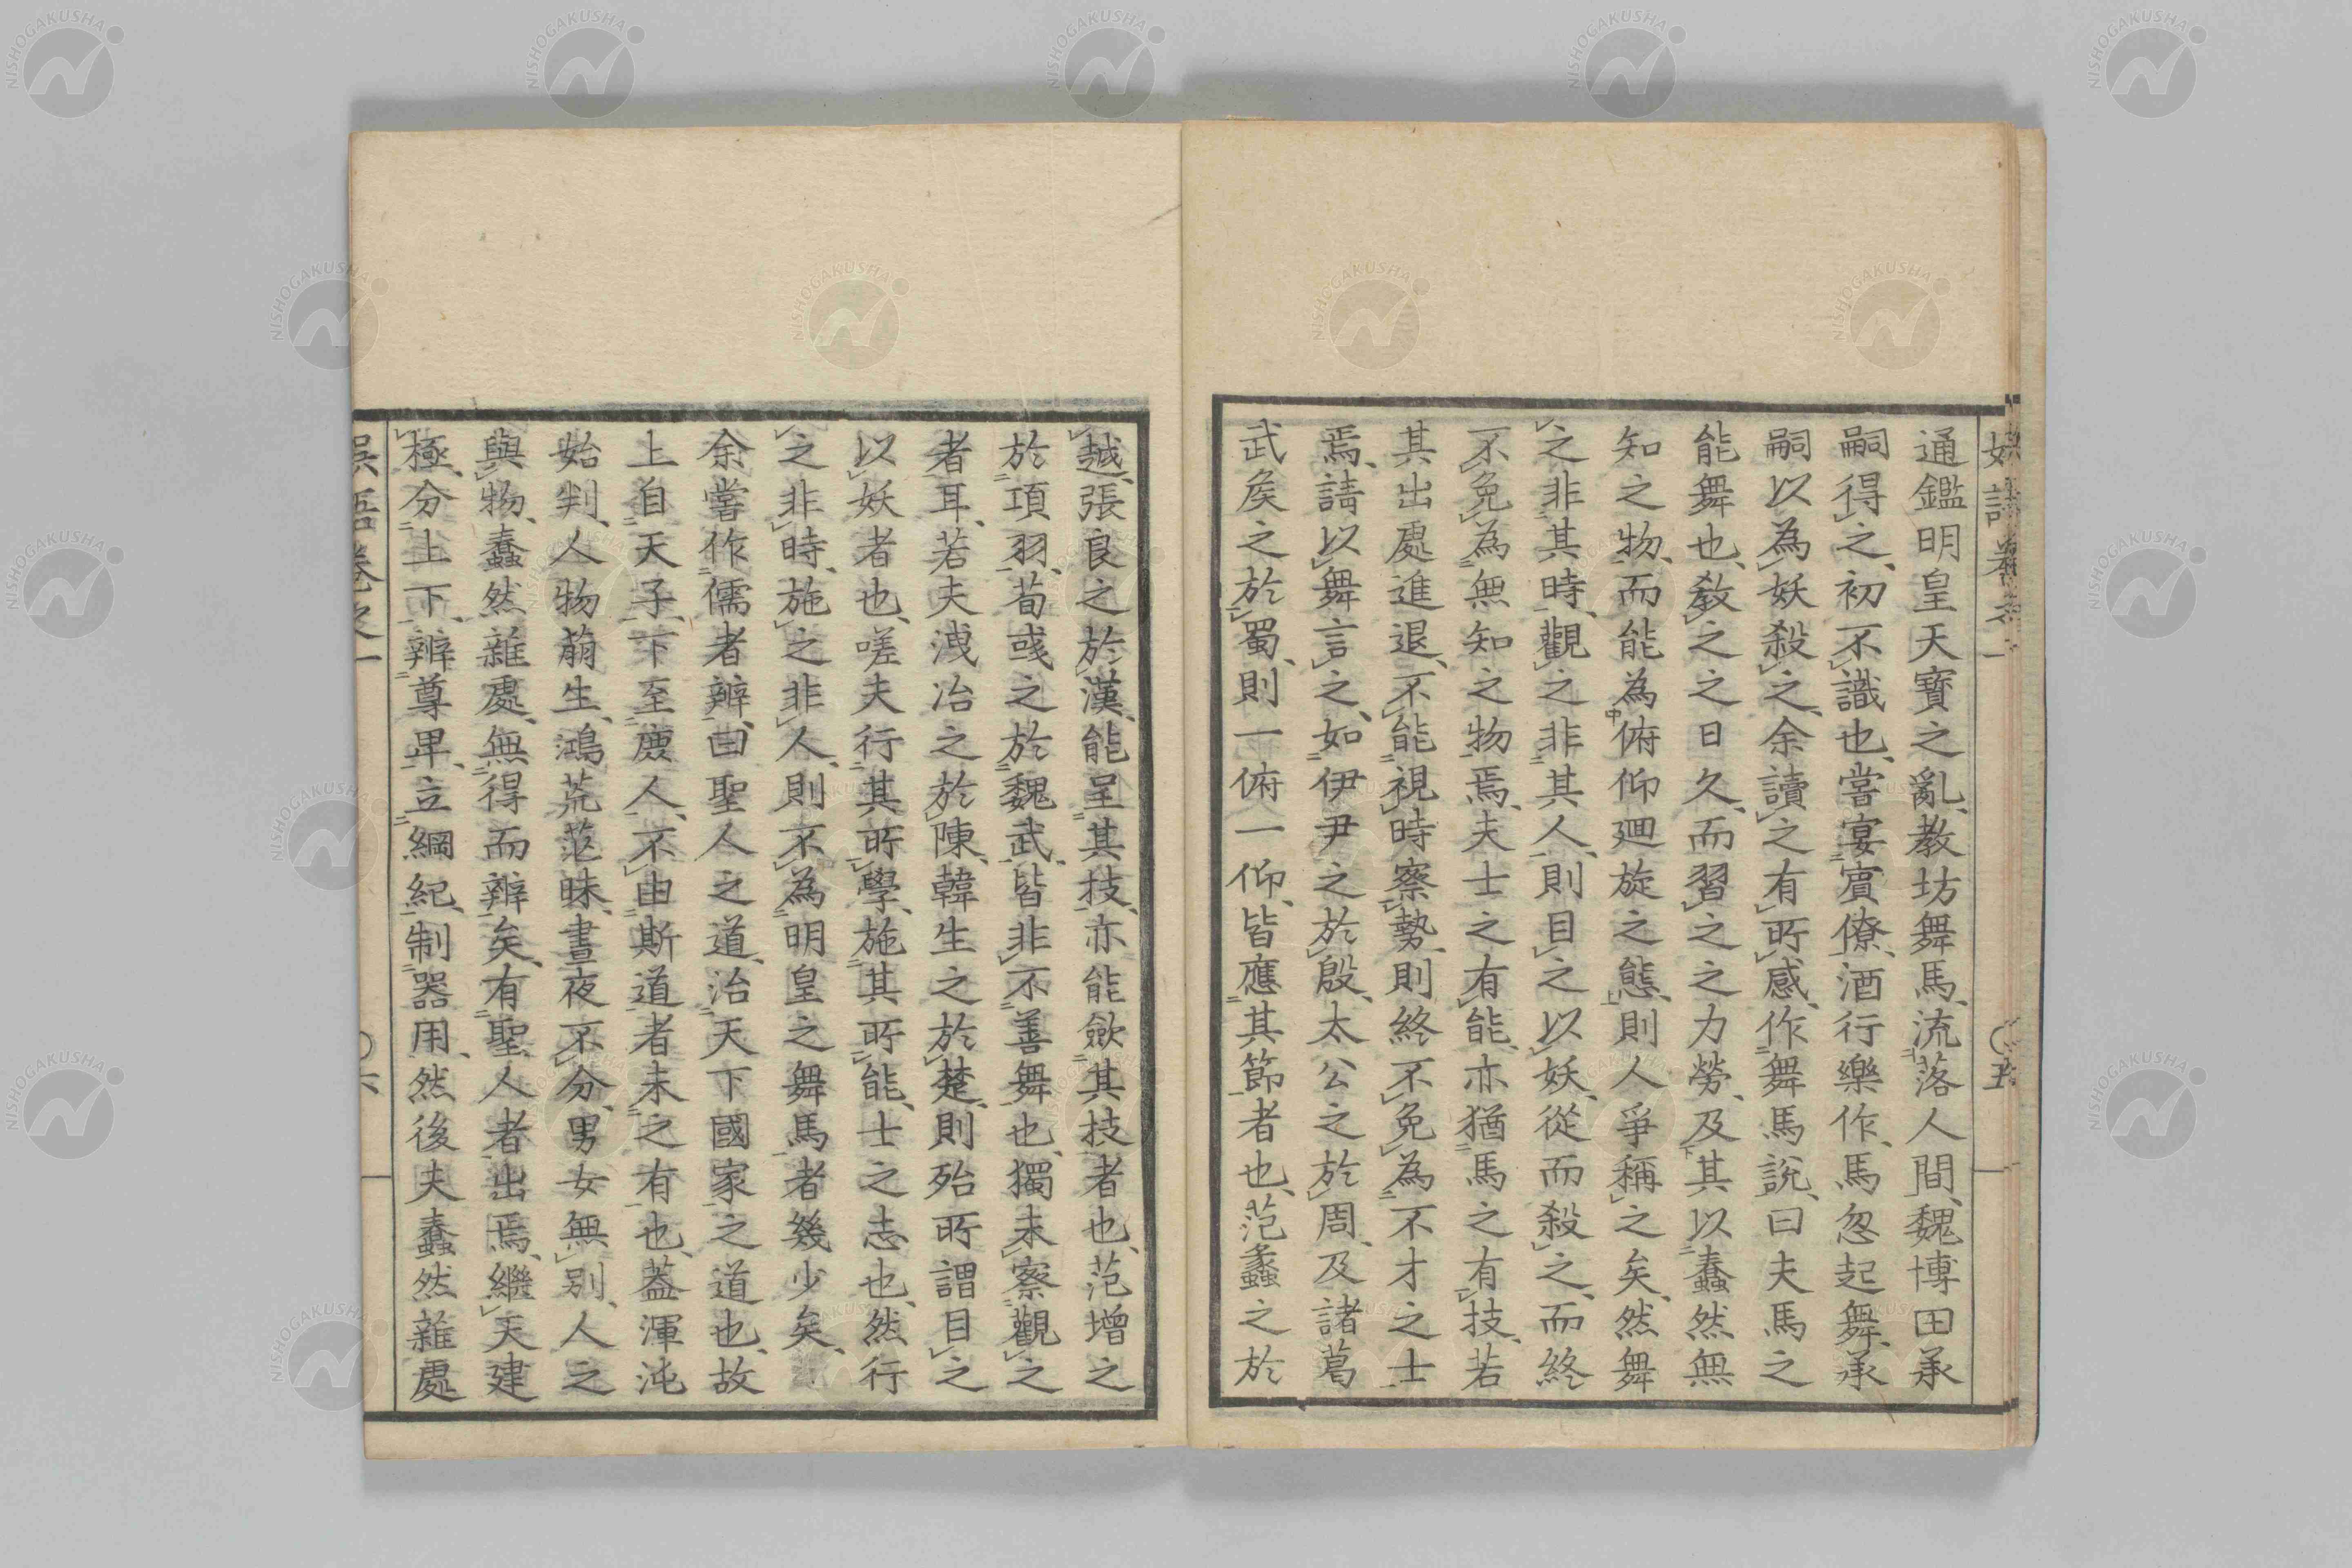 通鑑明皇天寶之亂、教坊舞馬、流落人間、魏博田承
嗣得之、初不識也、嘗宴賓僚、酒行樂作、馬忽起舞、承
嗣以為妖殺之、余讀之有所感、作舞馬説、曰夫馬之
能舞也、教之之日久、而習之之力勞、及其以蠢然無
知之物、而能為俯仰廻旋之態、則人爭稱之矣、然舞
之非其時、觀之非其人、則目之以妖、從而殺之、而終
不免為無知之物焉、夫士之有能、亦猶馬之有技、若
其出處進退、不能視時察勢、則終不免為不才之士
焉、請以舞言之、如伊尹之於殷、太公之於周、及諸葛
武矦之於蜀、則一俯一仰、皆應其節者也、范蠡之於
越、張良之於漢、能呈其技、亦能斂其技者也、范增之
於項羽、荀彧之於魏武、皆非不善舞也、獨未察觀之
者耳、若夫洩冶之於陳、韓生之於楚、則殆所謂目之
以妖者也、嗟夫行其所學、施其所能、士之志也、然行
之非時、施之非人、則不為明皇之舞馬者幾少矣、
余嘗作儒者辨、曰聖人之道、治天下國家之道也、故
上自天子、下至庶人、不由斯道者未之有也、葢渾沌
始判、人物萠生、鴻荒茫昧、晝夜不分、男女無別、人之
與物、蠢然雜處、無得而辨矣、有聖人者出焉、繼天建
極、分上下、辨尊卑、立綱紀、制器用、然後夫蠢然雜處